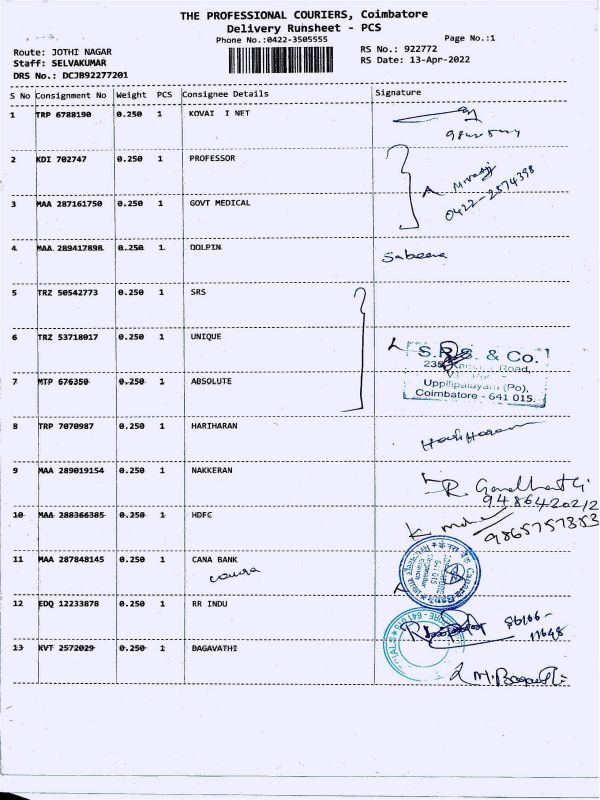 THE PROFESSIONAL COURIERS, Coimbatore
Delivery Runsheet - PCS
Phone No.:0422-3505555
Page No.:1
Route: JOTHI NAGAR
RS No.: 922772
Staff: SELVAKUMAR
RS Date: 13-Apr-2022
DRS No.: DCJB92277201
S No Consignment No Weight PCS Consignee Details Signature
1 TRP 6788190 0.250 1 KOVAI I NET
2 KDI 702747 0.250 1 PROFESSOR
0422-2574398
3 MAA 287161750 0.250 1 GOVT MEDICAL
4 MAA 289417898 0.250 1 DOLPIN
Sabeena
5 TRZ 50542773 0.250 1 SRS
6 TRZ 53718017 0.250 1 UNIQUE
S.R.S. & Co.
Road,
7 MTP 676350 0.250 1 ABSOLUTE
Uppilipalayam (Po),
Coimbatore - 641 015.
8 TRP 7070987 0.250 1 HARIHARAN
HariHaran
9 MAA 289019154 0.250 1 NAKKERAN
R
9486420212
10 MAA 288366385 0.250 1 HDFC
K
9865757853
11 MAA 287848145 0.250 1 CANA BANK
canara
12 EDQ 12233878 0.250 1 RR INDU
86166-
11648
13 KVT 2572029 0.250 1 BAGAVATHI
M.